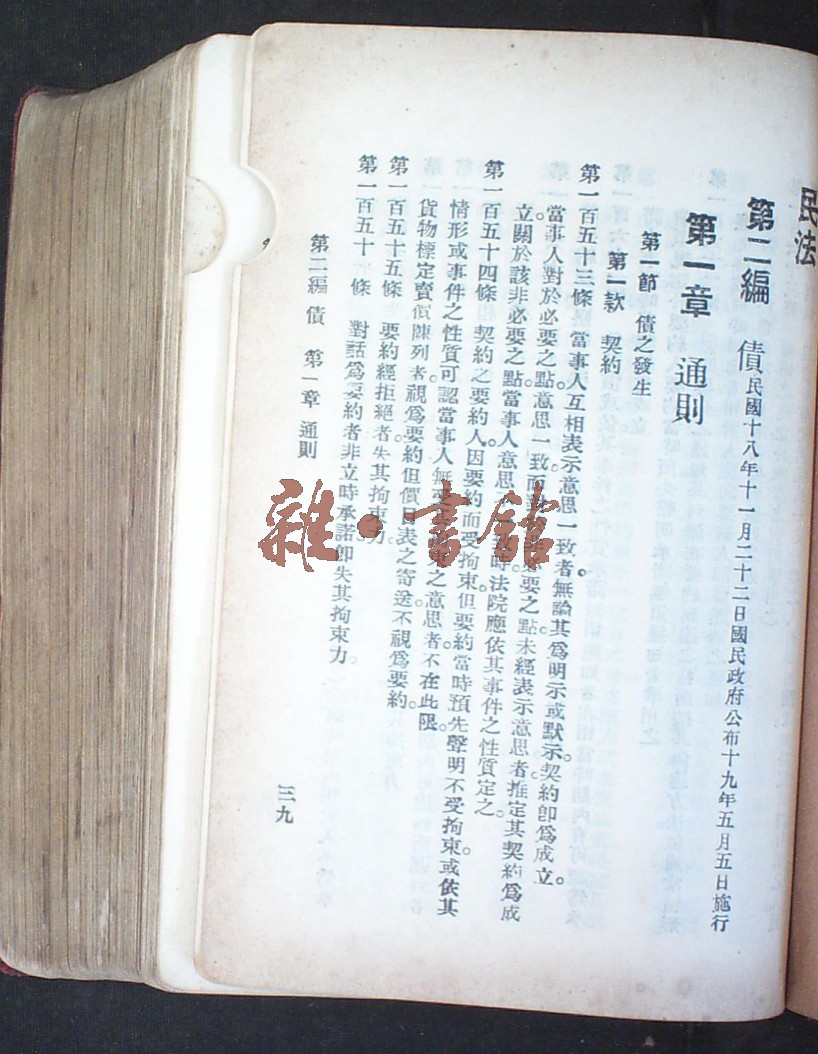 民法
第二編　債民國十八年十一月二十二日國民政府公布十九年五月五日施行
第一章　通則
第一節　債之發生
第一款　契約
第一百五十三條　當事人互相表示意思一致者無論其爲明示或默示。契約卽爲成立。
當事人對於必要之點。意思一致。而對於非必要之點。未經表示意思者。推定其契約爲成
立。關於該非必要之點。當事人意思不一致時。法院應依其事件之性質定之。
第一百五十四條　契約之要約人。因要約而受拘束。但要約當時預先聲明不受拘束。或依其
情形或事件之性質可認當事人無受其拘束之意思者。不在此限。
貨物標定賣價陳列者。視爲要約。但價目表之寄送。不視爲要約。
第一百五十五條　要約經拒絕者。失其拘束力。
第一百五十　條　對話爲要約者。非立時承諾。卽失其拘束力。
第二編　債　第一章　通則
三九
雜·書館